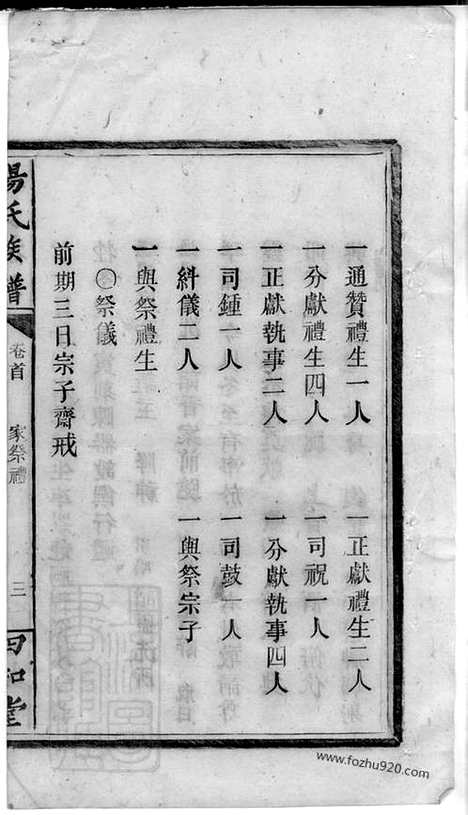 一通贊禮生一人　一正獻禮生二人
一分獻禮生四人　一司祝一人
一正獻執事二人　一分獻執事四人
一司鍾一人　一司鼓一人
一糾儀二人　一與祭宗子
一與祭禮生
○祭儀
前期三日宗子齋戒
楊氏族譜　卷首　家祭禮　三　堂
www.fozhu920.com